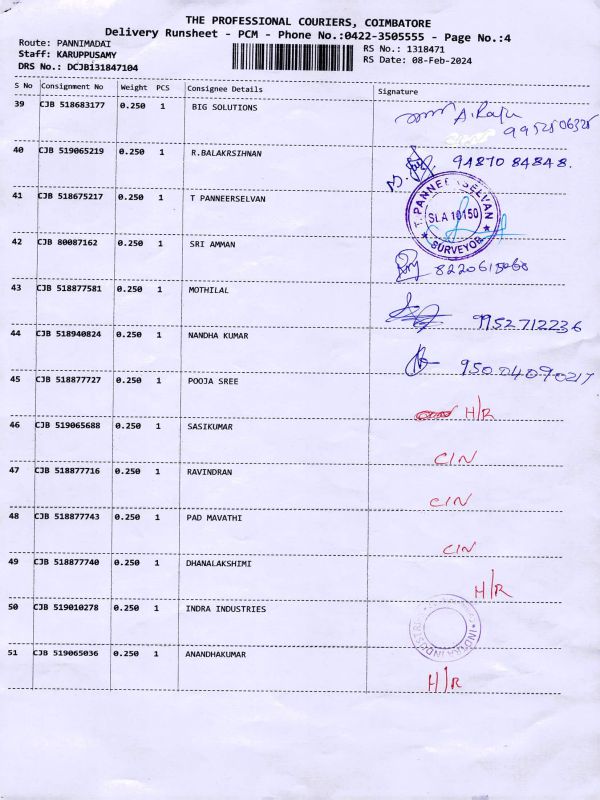 THE PROFESSIONAL COURIERS, COIMBATORE
Delivery Runsheet - PCM - Phone No.:0422-3505555 - Page No.:4
Route: PANNIMADAI
RS No.: 1318471
Staff: KARUPPUSAMY
RS Date: 08-Feb-2024
DRS No.: DCJB131847104
S No Consignment No Weight PCS Consignee Details Signature
39 CJB 518683177 0.250 1 BIG SOLUTIONS A. Raju
40 CJB 519065219 0.250 1 R.BALAKRSIHNAN 94870 84848.
41 CJB 518675217 0.250 1 T PANNEERSELVAN
T. PANNEERSELVAN
SLA 10150
SURVEYOR
42 CJB 80087162 0.250 1 SRI AMMAN
43 CJB 518877581 0.250 1 MOTHILAL 9952712236
44 CJB 518940824 0.250 1 NANDHA KUMAR 950 04090217
45 CJB 518877727 0.250 1 POOJA SREE H/R
46 CJB 519065688 0.250 1 SASIKUMAR C/N
47 CJB 518877716 0.250 1 RAVINDRAN C/N
48 CJB 518877743 0.250 1 PAD MAVATHI C/N
49 CJB 518877740 0.250 1 DHANALAKSHIMI H/R
50 CJB 519010278 0.250 1 INDRA INDUSTRIES
INDRA INDUSTRI
51 CJB 519065036 0.250 1 ANANDHAKUMAR H/R